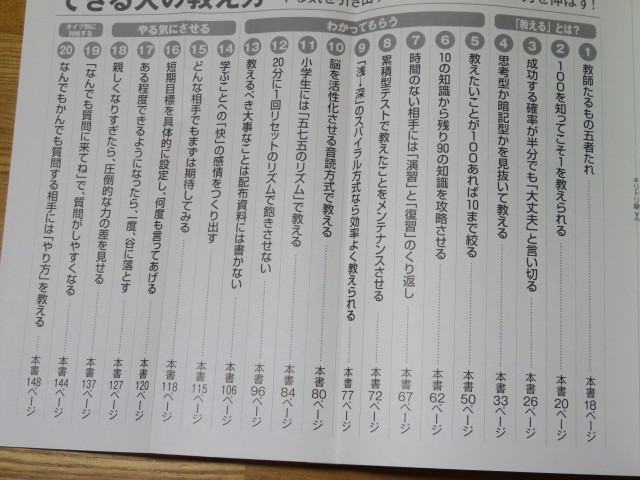 できる人の教え方
「教える」とは?
わかってもらう
やる気にさせる
タイプ別に対処する
1 教師たるもの五者たれ 本書18ページ
2 100を知ってこそ1を教えられる 本書20ページ
3 成功する確率が半分でも「大丈夫」と言い切る 本書26ページ
4 思考型か暗記型かを見抜いて教える 本書33ページ
5 教えたいことが100あれば10まで絞る 本書50ページ
6 10の知識から残り90の知識を攻略させる 本書62ページ
7 時間のない相手には「演習」と「復習」のくり返し 本書67ページ
8 累積型テストで教えたことをメンテナンスさせる 本書72ページ
9 「浅→深」のスパイラル方式なら効率よく教えられる 本書77ページ
10 脳を活性化させる音読方式で教える 本書80ページ
11 小学生には「五七五のリズム」で教える 本書84ページ
12 20分に1回リセットのリズムで飽きさせない 本書84ページ
13 教えるべき大事なことは配布資料には書かない 本書96ページ
14 学ぶことへの「快」の感情をつくり出す 本書106ページ
15 どんな相手でもまずは期待してみる 本書115ページ
16 短期目標を具体的に設定し、何度も言ってあげる 本書118ページ
17 ある程度できるようになったら、一度、谷に落とす 本書120ページ
18 親しくなりすぎたら、圧倒的な力の差を見せる 本書127ページ
19 「なんでも質問に来てね」で、質問がしやすくなる 本書137ページ
20 なんでもかんでも質問する相手には「やり方」を教える 本書144ページ
本書148ページ